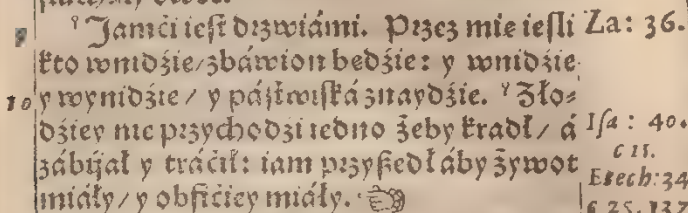 ʸ Jamći ieſt drzwiámi. Przez mie ieſli
kto wnidźie/zbáwion będźie: y wnidźie
y wynidźie/ y páſtwiſká znaydźie. ʸ Zło⸗
dźiey nie przychodzi iedno żeby kradł/ á
zábijał y tráćił: iam przyſzedł áby żywot
miáły/ y obfićiey miáły.
10
Za: 36.
Iſa : 40.
c 11.
Ezech: 34
c 25. 137